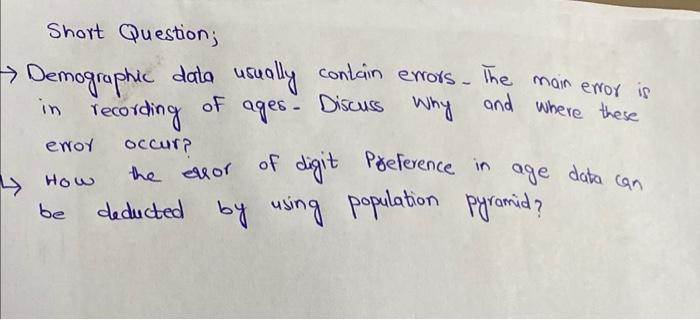 Short Question;
→ Demographic data usually contain errors - The main error is
in recording of ages - Discuss Why and where these
error occur?
↳ How the error of digit Preference in age data can
be deducted by using population pyramid?